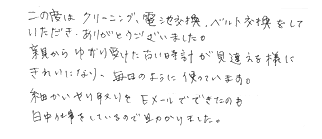 この度は クリーニング、電池交換、ベルト交換をして
いただき、ありがとうございました。
親から ゆずり受けた古い時計が見違える様に
きれいになり、毎日のように使っています。
細かいやり取りを Eメールでできたのも
日中仕事をしているので助かりました。